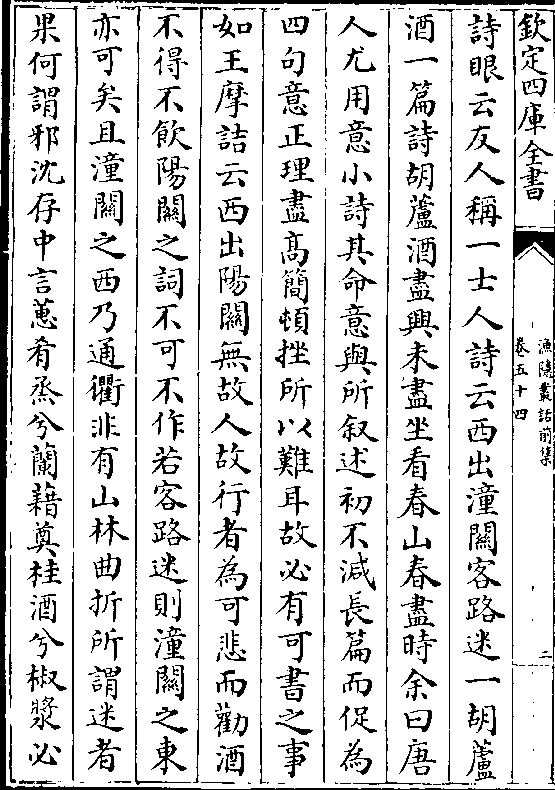 欽定四庫全書
漁隱叢話前集
卷五十四
二
詩眼云友人稱一士人詩云西出潼關客路迷一胡蘆
酒一篇詩胡蘆酒盡興未盡坐看春山春盡時余曰唐
人尤用意小詩其命意與所叙述初不減長篇而促為
四句意正理盡髙簡頓挫所以難耳故必有可書之事
如王摩詰云西出陽關無故人故行者為可悲而勸酒
不得不飲陽關之詞不可不作若客路迷則潼關之東
亦可矣且潼關之西乃通衢非有山林曲折所謂迷者
果何謂邪沈存中言蕙肴烝兮蘭藉奠桂酒兮椒漿必